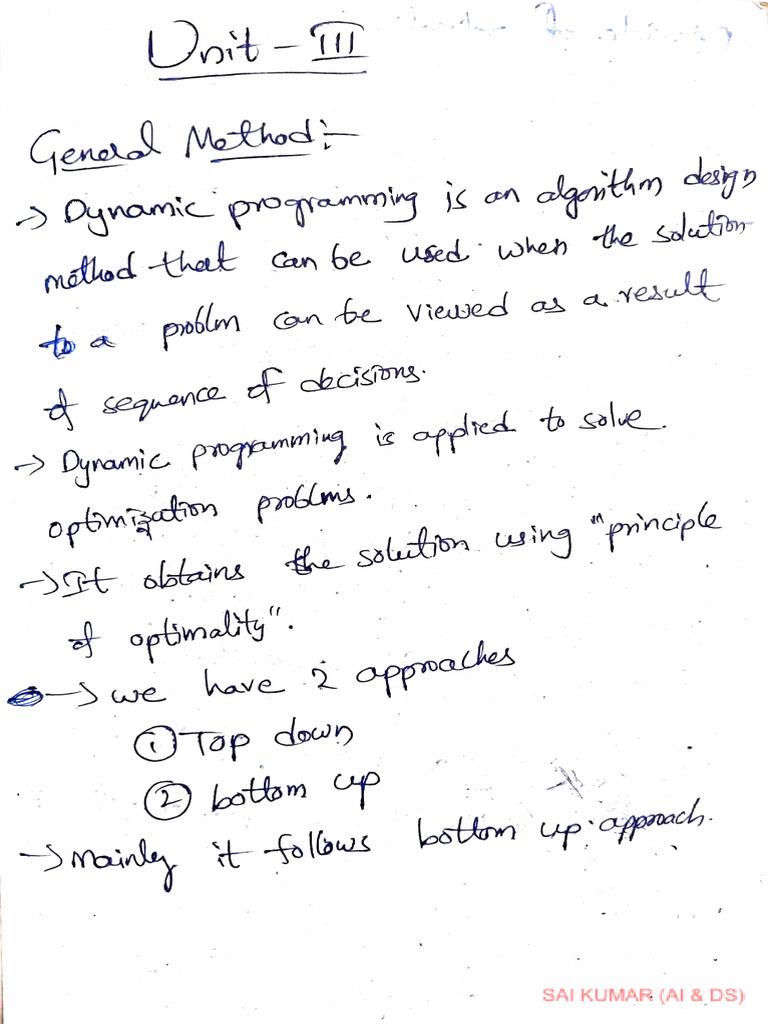 Unit - III
General Method:-
→ Dynamic programming is an algorithm design
method that can be used when the solution
to a problem can be viewed as a result
of sequence of decisions.
→ Dynamic programming is applied to solve
optimization problems.
→ It obtains the solution using "principle
of optimality".
→ we have 2 approaches
① Top down
② bottom up
→ Mainly it follows bottom up approach.
SAI KUMAR (AI & DS)